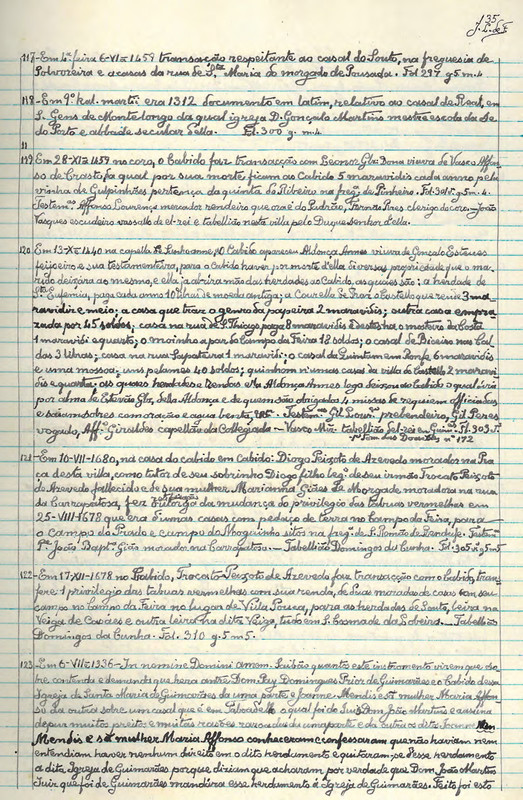 35
117-Em 4ª feira 6-VI-1459 transacção respeitante ao casal do Souto, na freguesia de
Polvoreira e a casas da rua de S.ta Maria do morgado de Pousada. Fol 297 g 5 m. 4
118-Em 9º kal. martii era 1312 documento em latim, relativo ao casal de Real, em
S. Gens de Montelongo da qual igreja D. Gonçalo Martins mestre escola da Sé
do Porto e abbade secular della. Fol. 300 g. m. 4
119 Em 28-XI-1459 no coro, o Cabido faz transacção com Leonor Glz Bona viuva de Vasco Affon
so de Crasto, fa qual por sua morte, ficam ao Cabido 5 maravidis cada anno pela
vinha de Gulpinhães pertença da quinta do Ribeiro na freg. de Pinheiro. Fol. 301 g. 5 m. 4.
Testem. Affonso Lourenço mercador rendeiro que ora é do Padrão, Fernão Pires clerigo de coro.-João
Vasques escudeiro vassallo de el-rei e tabellião nesta villa pelo Duque senhor della.
120 Em 13-X-1440 na capella, o Cabido appareceu Aldonça Annes viuva de Gonçalo Esteves
feijoeiro e sua testamenteira, para o Cabido haver por morte d'ella diversas propriedades que o ma-
rido deixára ao mesmo, e ella já abrira mão das herdades ao Cabido, as quaes são: a herdade de
S.ta Eufemia, paga cada anno 10 libras de moeda antiga; a Courella de Traz o Castello que rende 3 ma-
ravidis e meio; a casa que traz o genro da papeira 2 maravidis; outra casa empra-
zada por 45 soldos; casa na rua de S. Thiago paga 8 maravidis e desta ha o mosteiro da Costa
1 maravidi e quarto; o moinho a par do Campo da Feira 18 soldos; o casal de Biceiros nas Cal-
das 3 libras; casa na rua Sapateira 1 maravidi; o casal da Quintam em Ronfe 6 maravidis
e uma mossa; uns pelames 40 soldos; quinhom n'umas casas da villa do Castello 2 maravi-
dis e quarta; as quaes herdades e rendas ella Aldonça Annes lega deixou ao Cabido o qual iria
por alma de Estevão Glz, della Aldonça e de quem são obrigados 4 missas de requiem officiadas
e saiam sobre com oração e agua benta. Testem. Gil Lour. prebendeiro, Gil Peres
vogado, Aff. Giraldes capellão da Collegiada - Vasco Miz tabellião del-rei em Guim. Fl. 303 g.
nº 172
121 - Em 10-VII-1680, na casa do cabido em Cabido: Diogo Peixoto de Azevedo morador na Pra
ça desta villa, como tutor de seu sobrinho Diogo filho leg. de seu irmão Trocato Peixoto
de Azevedo fallecido e de sua mulher Marianna Giães de Morgade moradora na rua
da Carrapatosa, fez outorga da mudança do privilegio das tabuas vermelhas em
25-VIII-1678 que era d'umas casas com pedaço de terra no Campo da Feira, para
o Campo do Prado e campo do Moguinho sitos na freg. de S. Romão de Rendufe. Testem.
P.e João Bapt. Giães morador na Carrapatosa. - Tabellião Domingos da Cunha. Fol. 305 g 5 m 5
122-Em 17-XII-1678 no Cabido, Trocato Peixoto de Azevedo faz transacção com o Cabido, trans
fere 1 privilegio das tabuas vermelhas com sua renda, de duas moradas de casas com seu
campo no Campo da Feira no lugar de Villa Pouca, para as herdades de Souto, leira na
Veiga de Cavaes e outra leira na dita Veiga, tudo em S. Thomade da Lobeira. - Tabellião
Domingos da Cunha. Fol. 310 g 5 m 5.
123 Em 6-VII-1336-In nomine Domini amen. Saibão quantos este instrumento virem que so-
bre contenda e demanda que hera antre Dom Pay Domingues Prior de Guimarães e o Cabido dessa
Igreja de Santa Maria de Guimarães da uma parte e Joanne Mendis e sá mulher Maria Affon
so da outra sobre um casal que é em o qual foi do Juis Dom João Martins e assina
depur muitos preitos e muitas razões razoadas da uma parte e da outra os ditos Joanne
Mendis e sá mulher Maria Affonso conheceram e confessaram que não haviam nem
entendiam haver nenhum direito em o dito herdamento e quitaram-se desse herdamento
a dita Igreja de Guimarães porque diziam que acharam por verdade que Dom João Martins
Juiz que foi de Guimarães mandára esse herdamento á Igreja de Guimarães. Feito foi esto